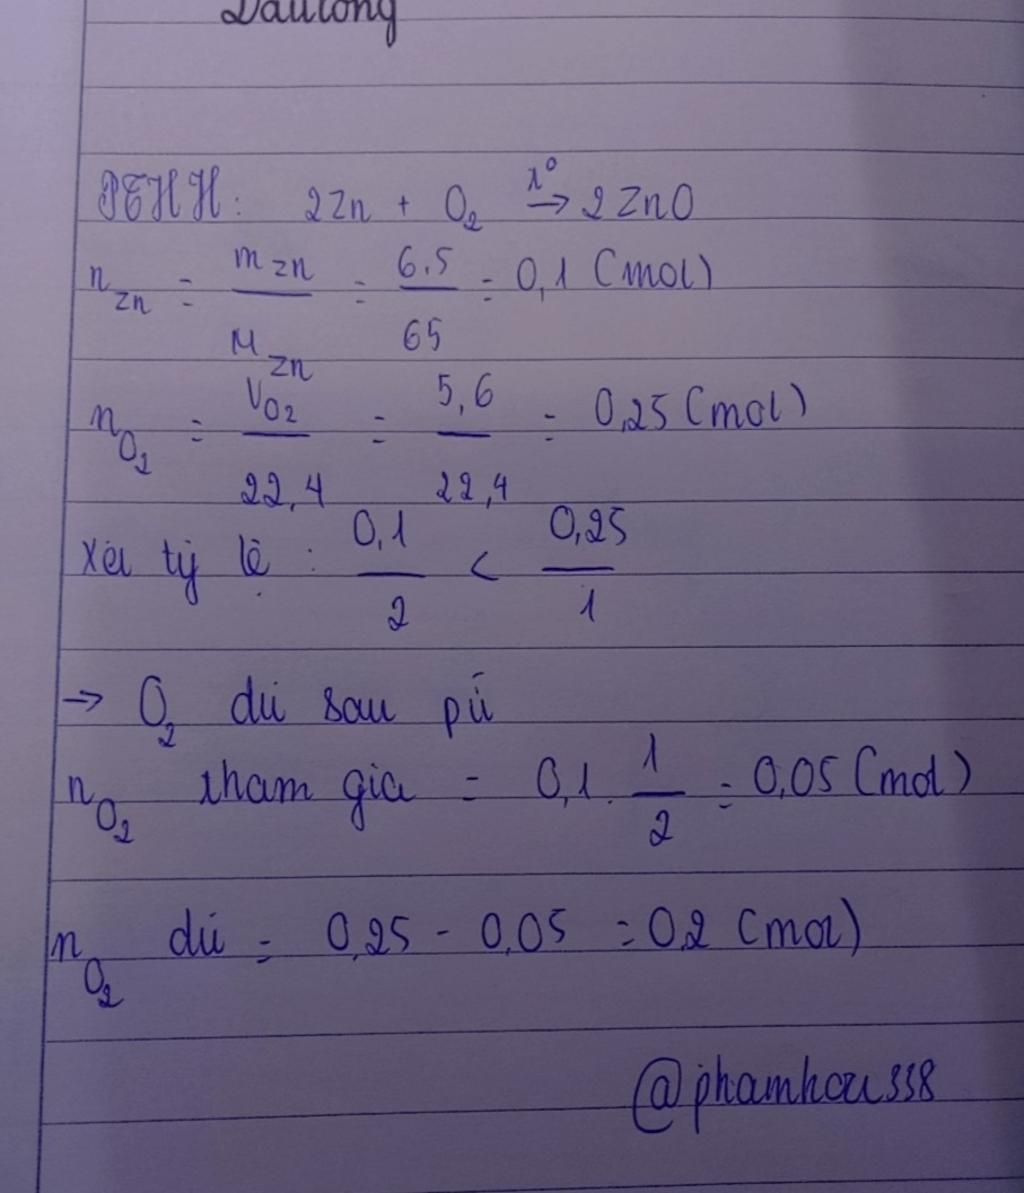 Daulong
PTHH: 2Zn + O₂ →(t°) 2ZnO
n_Zn = m_Zn / M_Zn = 6.5 / 65 = 0,1 (mol)
n_O₂ = V_O₂ / 22,4 = 5,6 / 22,4 = 0,25 (mol)
Xét tỷ lệ : 0,1 / 2 < 0,25 / 1
→ O₂ dư sau pứ
n_O₂ tham gia = 0,1 . 1 / 2 = 0,05 (mol)
n_O₂ dư = 0,25 - 0,05 = 0,2 (mol)